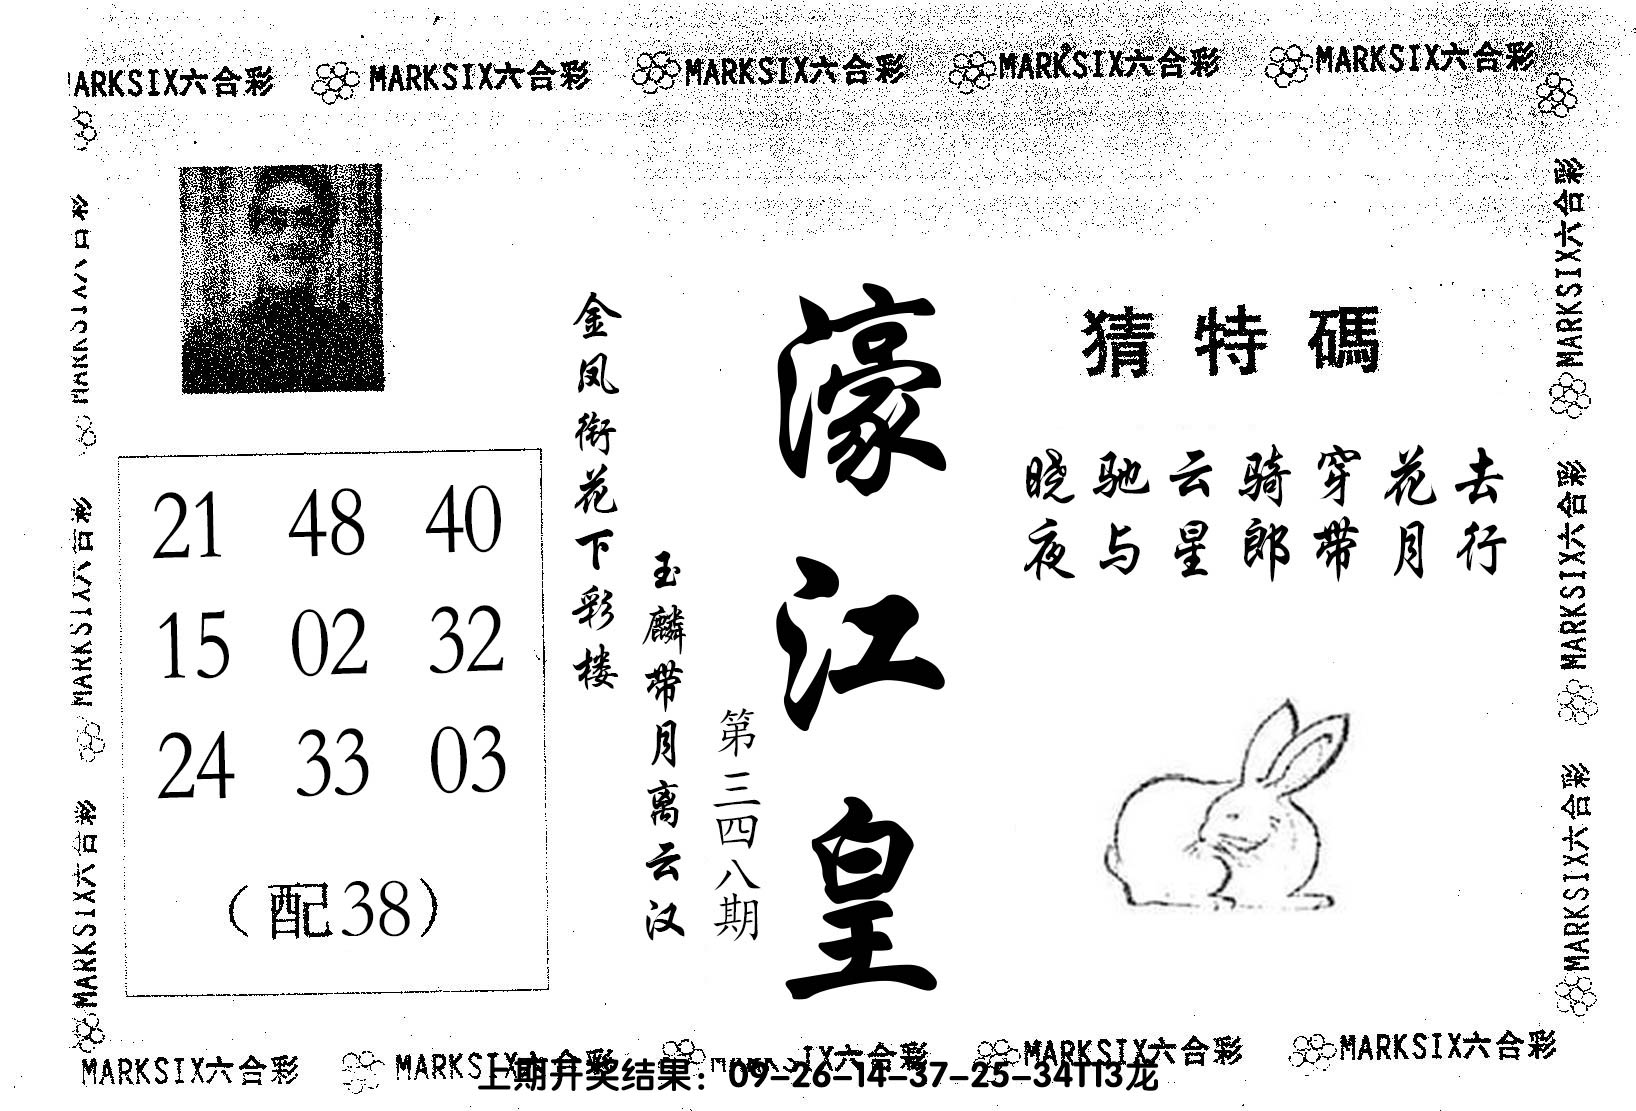 MARKSIX六合彩 MARKSIX六合彩 MARKSIX六合彩 MARKSIX六合彩 MARKSIX六合彩
MARKSIX六合彩
MARKSIX六合彩
MARKSIX六合彩
21 48 40
15 02 32
24 33 03
（配38）
金凤衔花下彩楼
玉麟带月离云汉
第三四八期
濠江皇
猜特碼
晓驰云骑穿花去
夜与星郎带月行
MARKSIX六合彩
MARKSIX六合彩
MARKSIX六合彩
MARKSIX六合彩 MARKSIX六合彩 IX六合彩 MARKSIX六合彩 MARKSIX六合彩
上期开奖结果：09-26-14-37-25-34T13龙